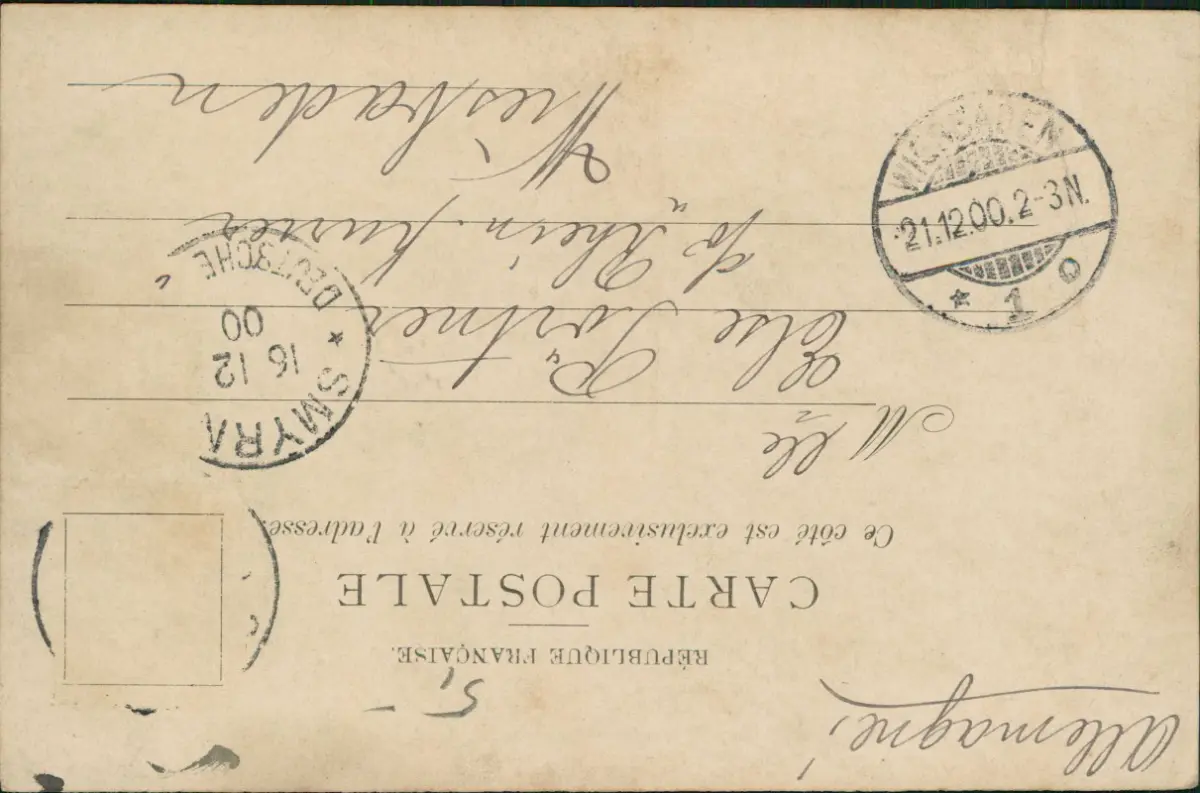 Allemagne,
RÉPUBLIQUE FRANÇAISE.
5,-
CARTE POSTALE
Ce côté est exclusivement réservé à l'adresse.
Mlle
Else Pörtner
Rhein. Kurier
Wiesbaden
SMYRN
16 12
00
* DEUTSCHE
WIESBADEN
21.12.00.2-3N.
* 1 o